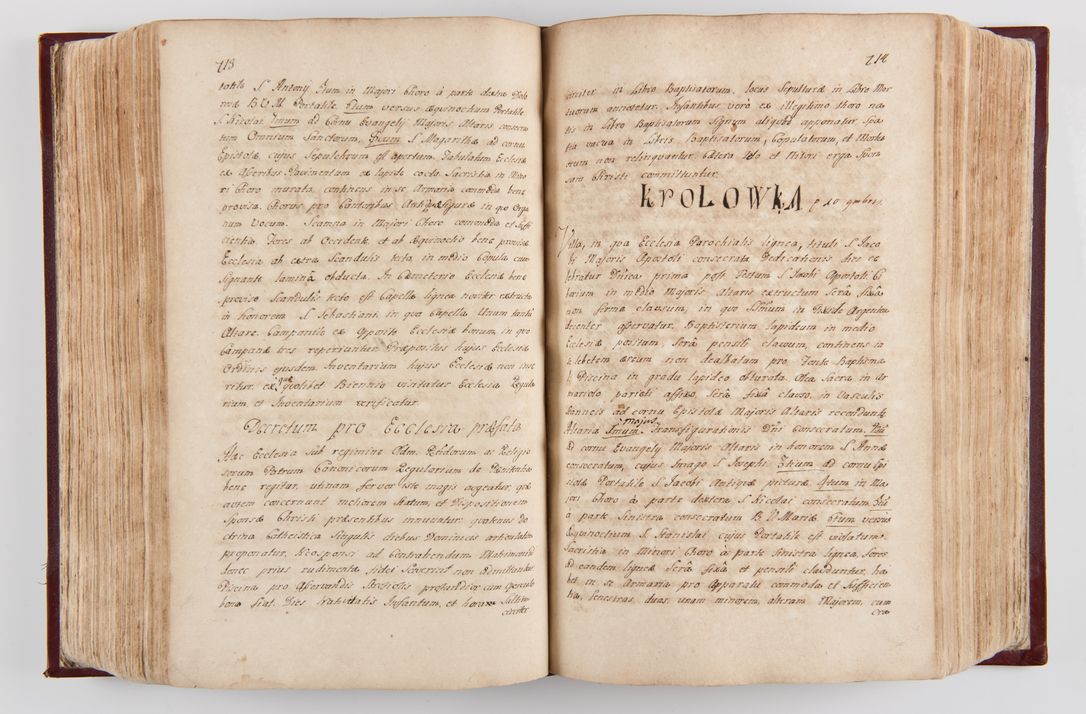 713
tatile S. Antonij 3tium in Majori Choro à parte dextra Dolo
rosæ B.V.M. Portatile. 4tum versus æquinoctium Portatile
S. Nicolai. 5mum ad Cornu Evangelij Majoris Altaris consecra
tum Omnium Sanctorum. S. Margarithæ ad cornu
Epistolæ cujus Sepulchrum est apertum. Tabulatum Ecclesiæ
ex Asseribus Pavimentum ex lapide cocto Sacristia in Mino
ri Choro murata, continens in se Armaria commoda bene
provisa. Chorus pro Cantoribus Antiquæ figuræ in quo Orga
num Vocum. Scamna in Majori Choro comoda et suffi
cientia. Fores ab Occidente et ab Æquinoctio bene provisæ
Ecclesia ab extra Scandulis tecta, in medio Cupula cum
Signante laminâ obducta. In Cæmeterio Ecclesiæ bene
proviso Scandulis tecto est Capella lignea noviter extructa
in honorem S. Sebastiani, in qua Capella Unum tantũ
Altare. Campanile ex Opposito Ecclesiæ bonum, in quo
Campanæ tres reperiuntur. Præpositus hujus Ecclesiæ
Ordinis ejusdem. Inventarium hujus Ecclesiæ non inve
nitur, ex quo quolibet Biennio visitatur Ecclesia Regula
rium et Inventarium verificatur.
Decretum pro Ecclesia præfata
Hæc Ecclesia sub regimine Adm. Rndorum ac Religio
sorum Patrum Canonicorum Regularium de Pænitentia
bene regitur, utinam fervor iste magis augeatur, quæ
autem concernunt meliorem Statum, et Dispositionem
Sponsæ Christi præsentibus innuuntur quatenus Do
ctrina Cathestica singulis diebus Dominicis articulatim
proponatur. Neo Sponsi ad Contrahendum Matrimonium
donec prius rudimenta fidei sciverint non admittantur
Piscina pro Asservandis profundior cum Operculo
bono fiat. Dies Nativitatis Infantum, et horam
714
in Libro Baptizatorum, locus Sepulturæ in Libro Mor
tuorum annotetur. Infantibus verò ex illegitimo thoro na
tis in Libro Baptizatorum Signum aliquod apponatur Spa
tia vacua in Libris Baptizatorum, Copulatorum, et Mortu
orum non relinquantur. Cætera Zelo et Amori erga Spon
sam Christi committuntur.
KROLOWKA p 10 9mbris
Villa, in qua Ecclesia Parochialis lignea, tituli S. Jaco
bi Majoris Apostoli consecrata Dedicationis dies ce
lebratur Dnica prima post Festum S. Jacobi Apostoli. Ci
borium in medio Majoris Altaris extructum Serâ fixâ
non firme clausum, in quo SSmum in Pixide Argentea
decenter asservatur. Baptisterium lapideum in medio
Ecclesiæ positum, Serâ pensili clausum, continens in
se lebetem æreum non dealbatum pro Fonte Baptisma
li Piscina in gradu lapideo obturata. Olea Sacra in ar
mariolo parieti affixo, Serâ fixâ clauso, in Vasculis
stanneis ad cornu Epistolæ Majoris Altaris reconduntur
Altaria 1mum majus Transfigurationis Dni Consecratum. 2dũ
à cornu Evangelij Majoris Altaris in honorem S. Annæ
consecratum, cujus Imago S. Josephi. 3tium ad cornu Epi
stolæ Portatile S. Jacobi Antiquæ picturæ 4tum in Ma
jori Choro à parte dextera S. Nicolai consecratum
à parte sinistra consecratum B.V. Mariæ 6tum versus
Æquinoctium S. Stanislai cujus Portatile est violatum.
Sacristia in Minori Choro à parte sinistra lignea, Fores
ad eandem ligneæ Serâ fixâ et pensili clauduntur, ha
bet in se Armaria pro Apparatu commoda et suffecien
tia, fenestras duas, unam minorem, alteram Majorem, cum